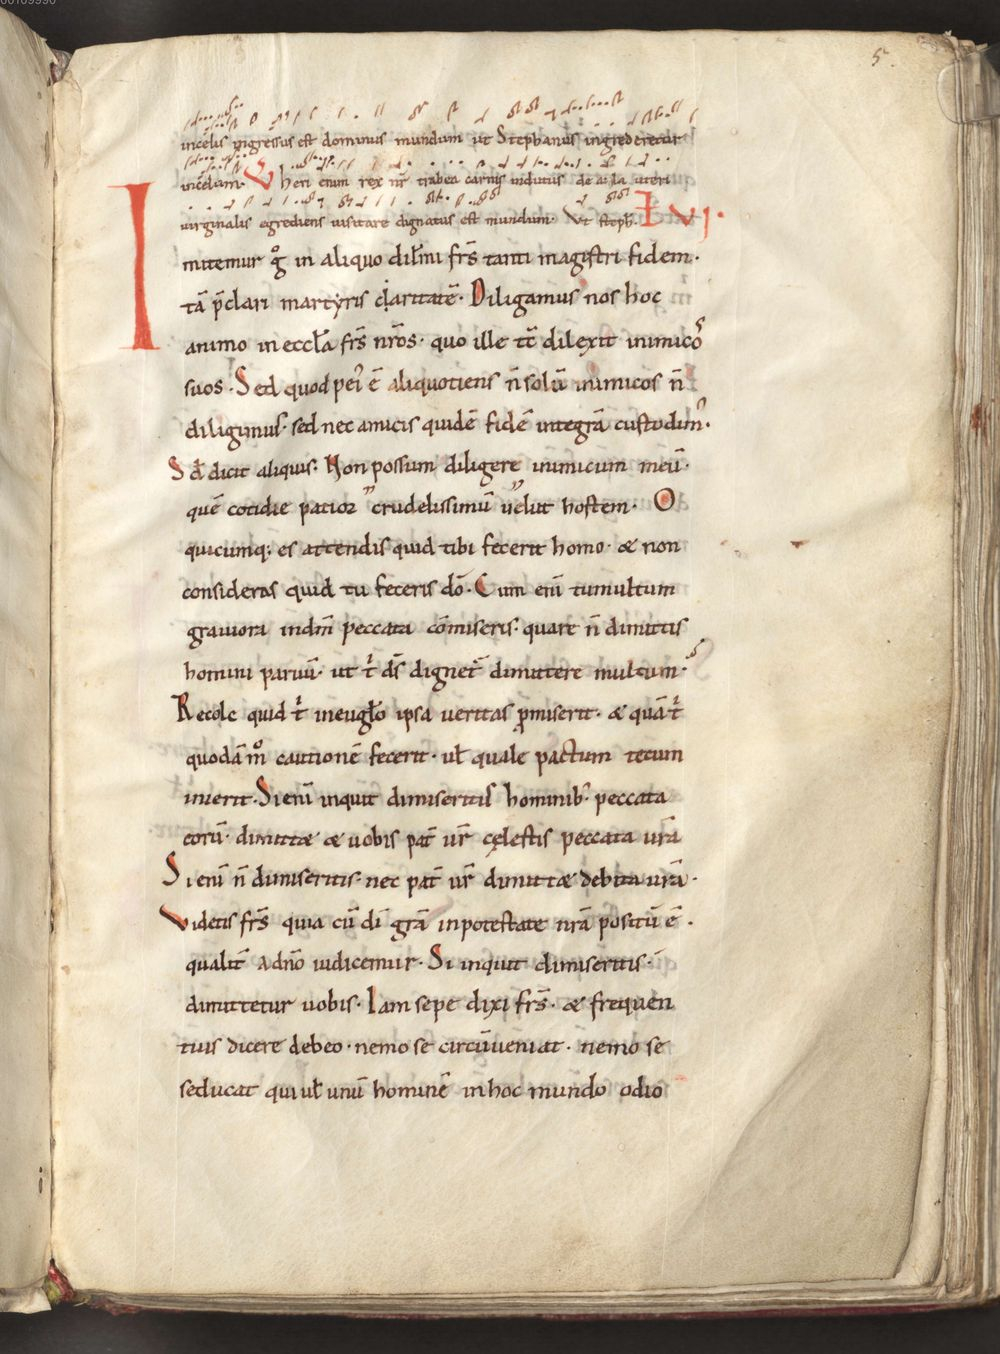 5.
incelis ingressus est dominus mundum ut Stephanus ingrederetur
incelum. V heri enim rex nr̄ trabea carnis indutus de aula uteri
virginalis egrediens visitare dignatus est mundum. Vt steph. L VI.
I mitemur gͦ in aliquo dil̄mi fr̄s tanti magistri fidem.
tā p̄clari martyris claritatē. Diligamus nos hoc
animo in eccl̄a fr̄s nr̄os. quo ille tc̄ dilexit inimicos
suos. Sed quod peiꝰ ē aliquotiens n̄ solū inimicos n̄
diligimus. sed nec amicis quidē fidē integrā custodimꝰ.
Sꝫ dicit aliquis. Non possum diligere inimicum meū.
quē cotidie patior crudelissimū uelut hostem. O
quicumq; es attendis quid tibi fecerit homo. & non
consideras quid tu feceris dō. Cum eni̅ tu multum
graviora indm̄ peccata cōmiseris. quare n̄ dimittis
homini parvū. ut t̄ ds̄ dignet̄ dimittere multum.
Recole quid t̄ ineugl̄o ipsa veritas p̄miserit. & quā t̄
quodā mͦ cautionē fecerit. ul̄ quale pactum tecum
inierit. Si eni̅ inquit dimiseritis hominibꝰ peccata
eorū. dimittæ & vobis pat̄ vr̄ cęlestis peccata vr̄a
Si eni̅ n̄ dimiseritis. nec pat̄ vr̄ dimittæ debita vr̄a.
Videtis fr̄s quia cū di̅ grā in potestate nr̄a positū ē.
qualit̄ adn̄o iudicemur. Si inquit dimiseritis.
dimittetur vobis. Iam sepe dixi fr̄s. & frequen
tius dicere debeo. nemo se circūveniat. nemo se
seducat qui ul̄ unū hominē in hoc mundo odio